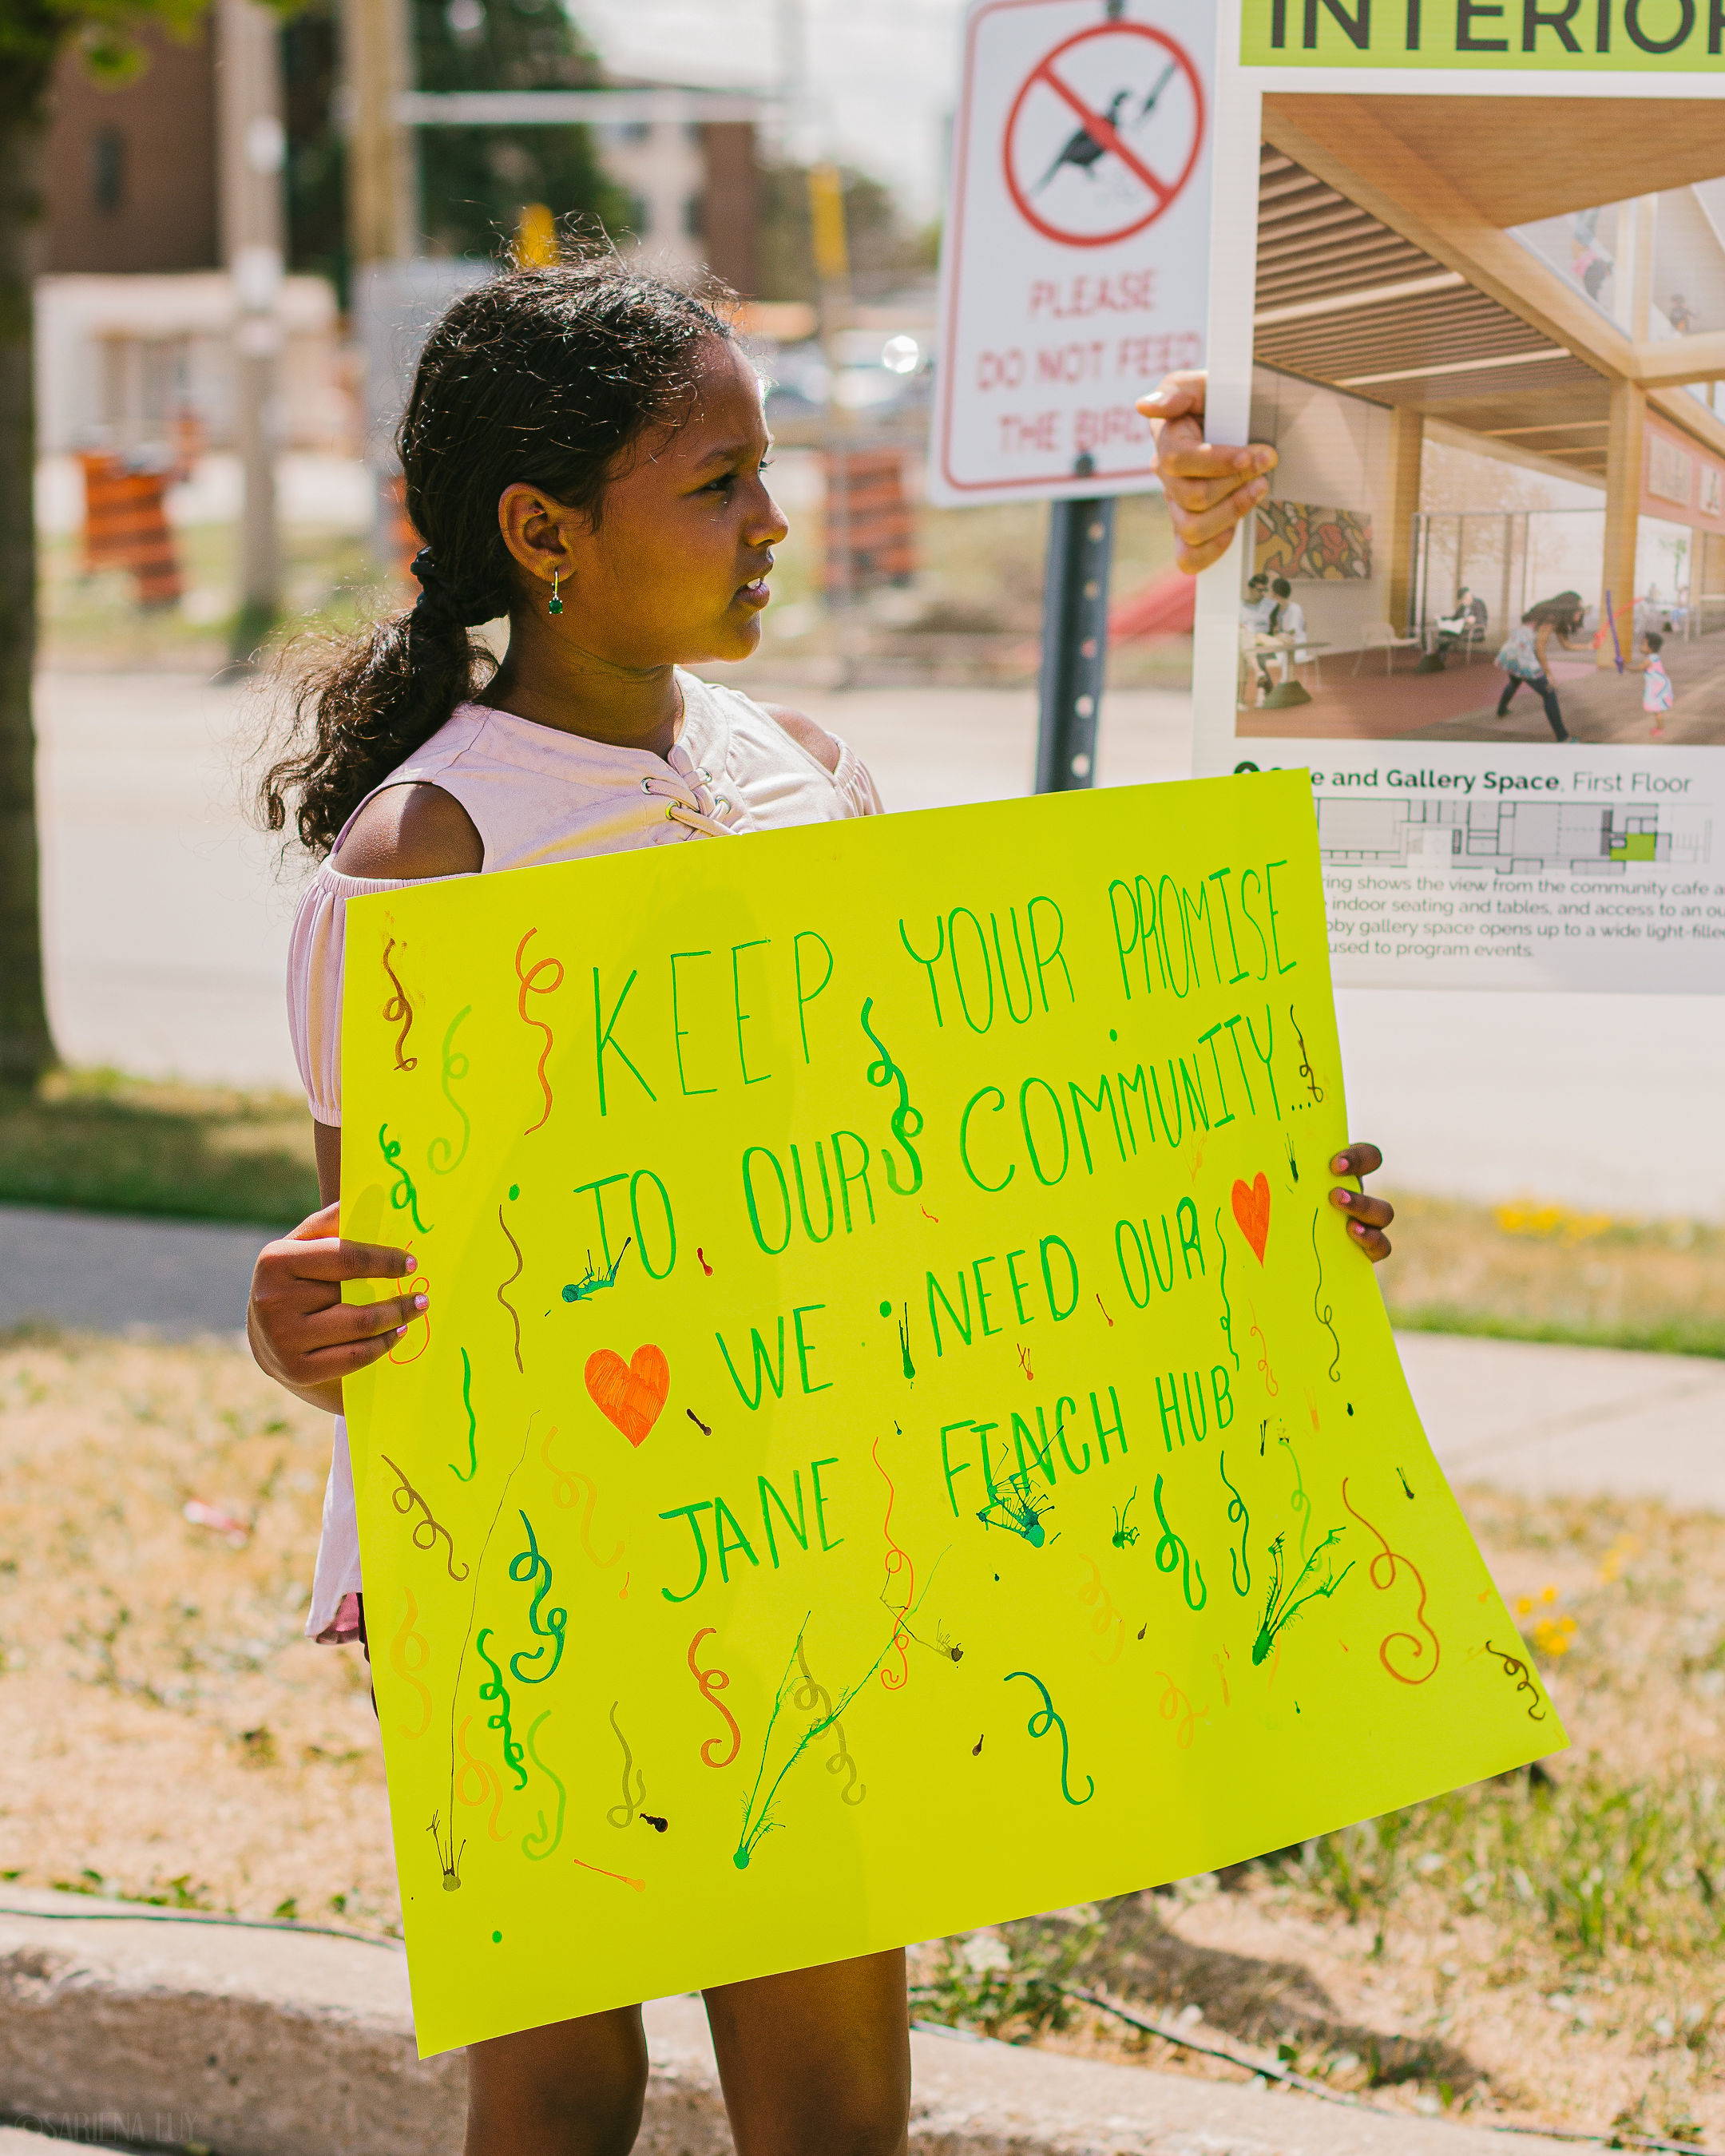 INTERIOR
PLEASE
DO NOT FEED
THE BIRD
e and Gallery Space, First Floor
ring shows the view from the community cafe a
indoor seating and tables, and access to an ou
bby gallery space opens up to a wide light-filled
used to program events.
KEEP YOUR PROMISE
TO OUR COMMUNITY...
WE NEED OUR
JANE FINCH HUB
©SARIENA LUY